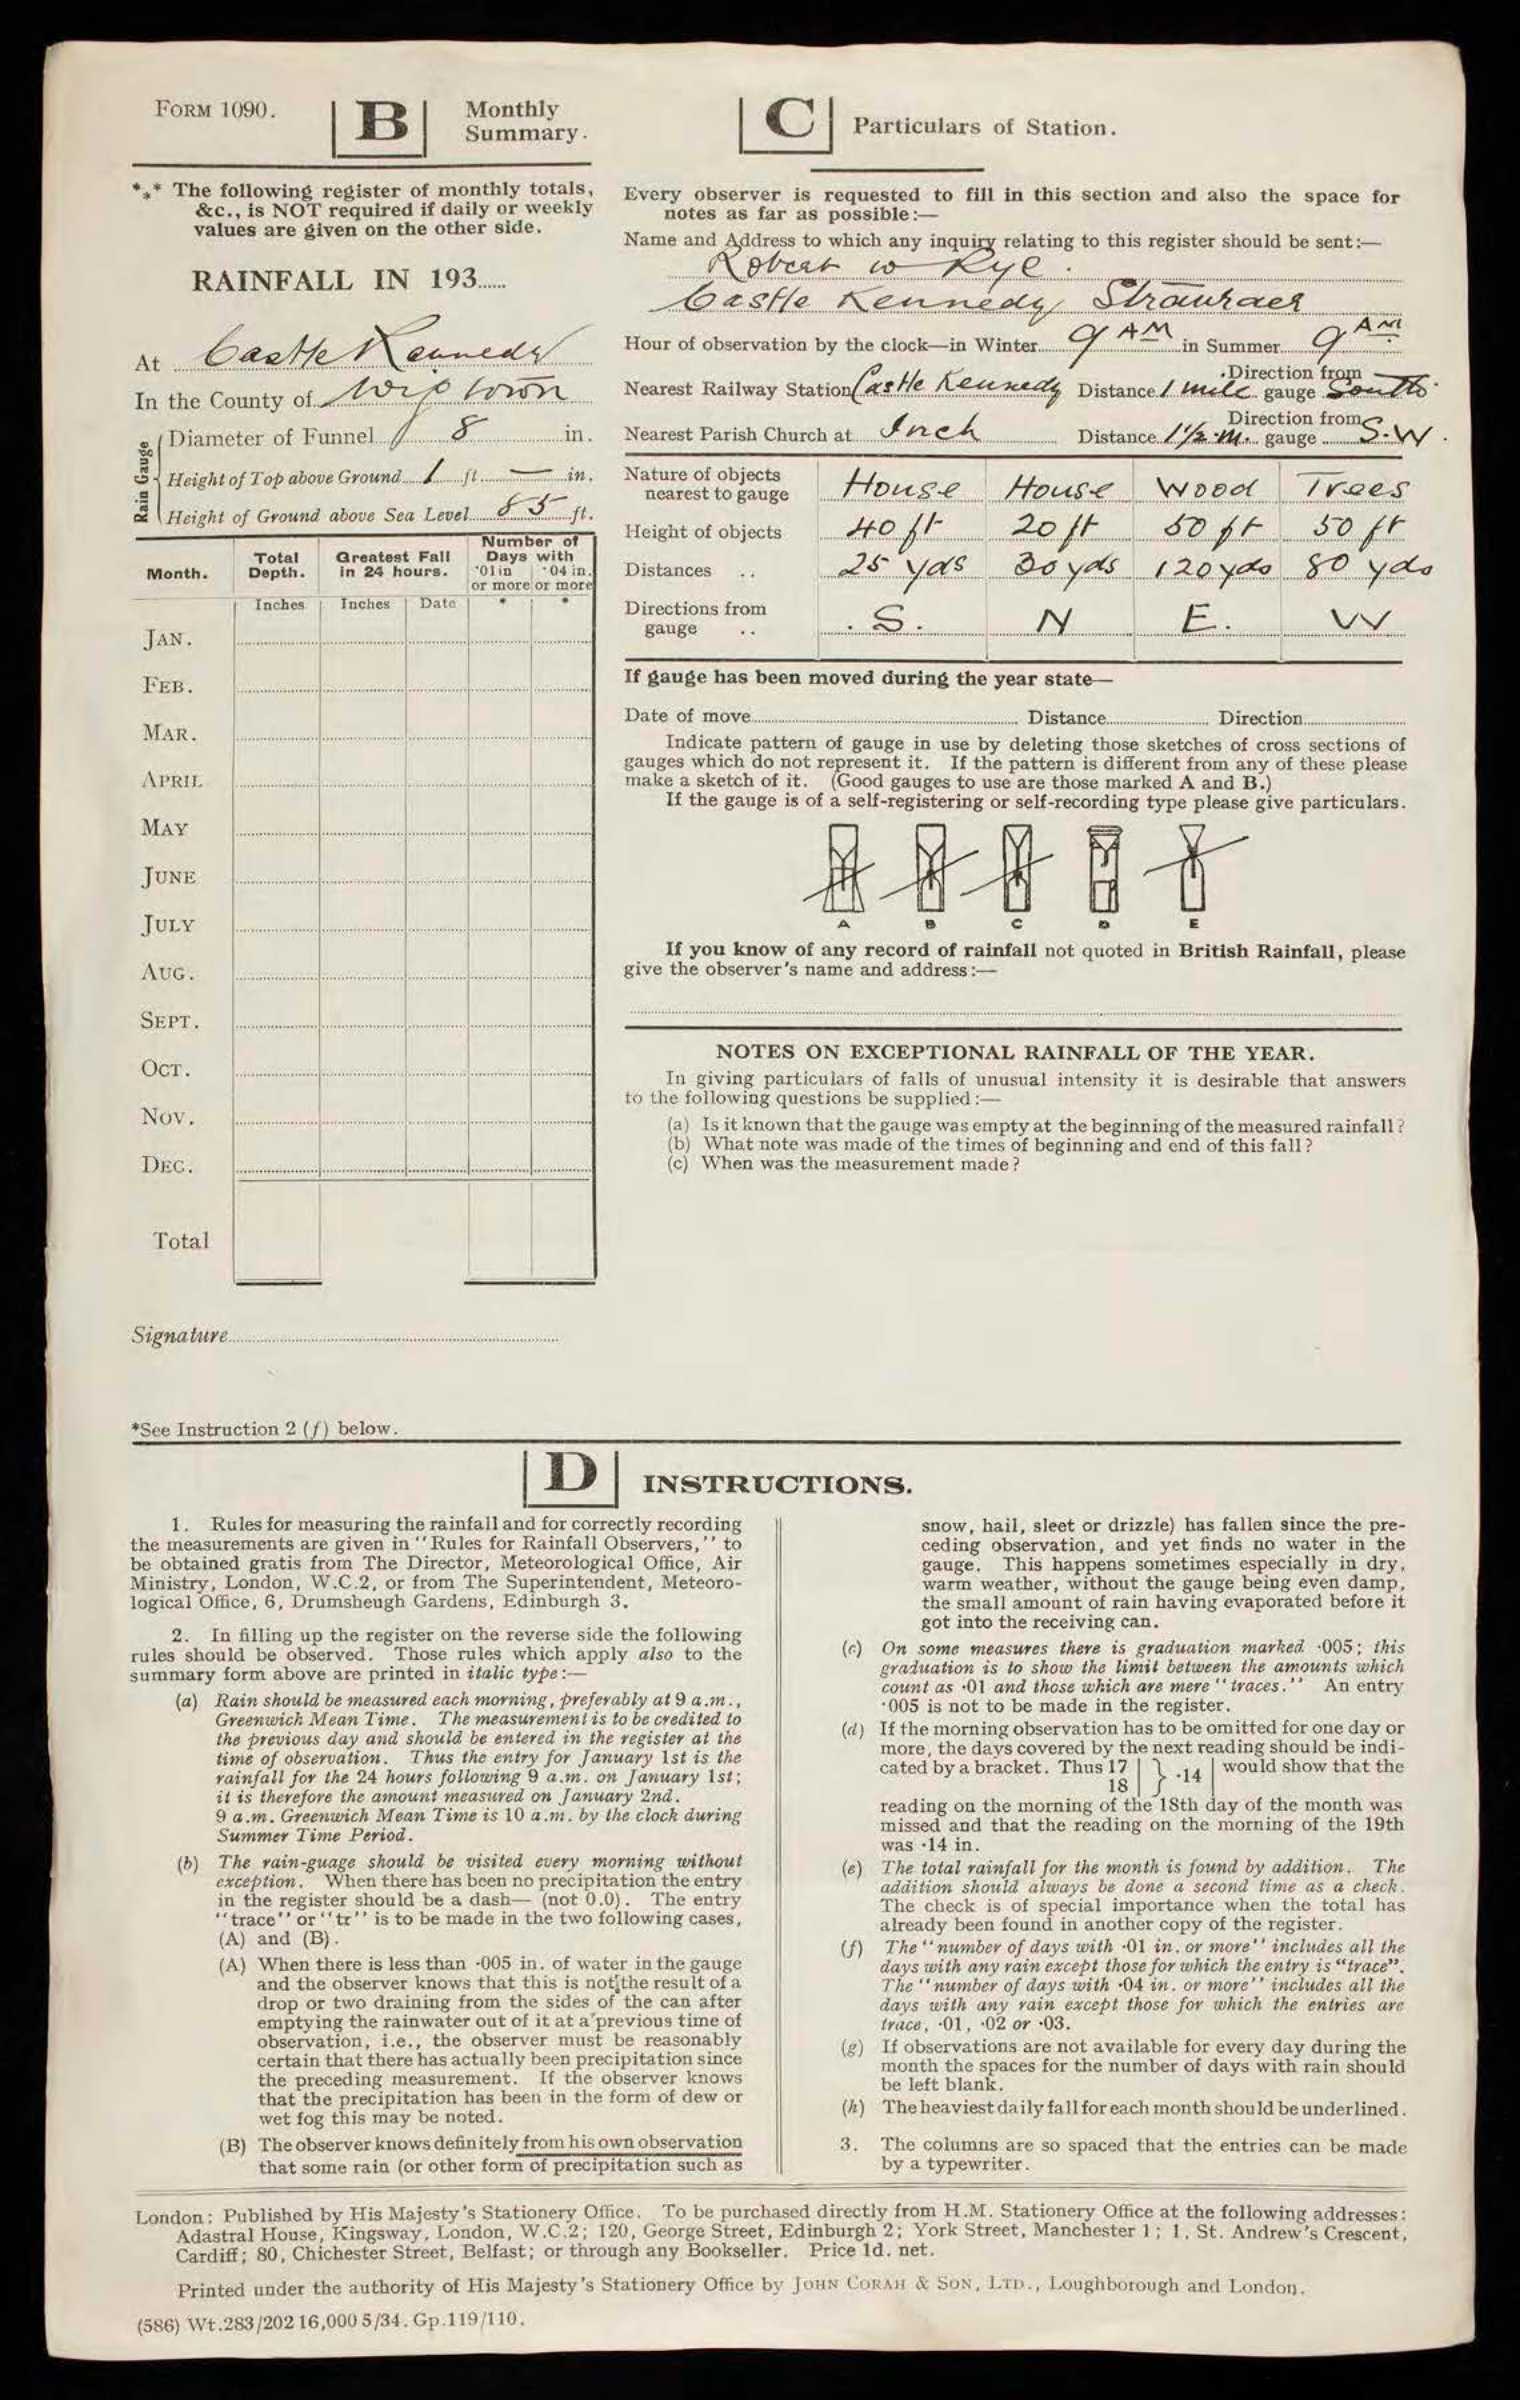 FORM 1090.
B
Monthly
Summary.
*⁎* The following register of monthly totals,
&c., is NOT required if daily or weekly
values are given on the other side.
RAINFALL IN 193......
At Castle Kennedy
In the County of Wigtown
Rain Gauge
Diameter of Funnel 8 in.
Height of Top above Ground 1 ft. — in.
Height of Ground above Sea Level 85 ft.
Month.
Total
Depth.
Greatest Fall
in 24 hours.
Number of
Days with
·01 in ·04 in.
or more or more
Inches Inches Date * *
JAN.
FEB.
MAR.
APRIL
MAY
JUNE
JULY
AUG.
SEPT.
OCT.
NOV.
DEC.
Total
Signature
*See Instruction 2 (f) below.
C
Particulars of Station.
Every observer is requested to fill in this section and also the space for
notes as far as possible:—
Name and Address to which any inquiry relating to this register should be sent:—
Robert W Rye.
Castle Kennedy Stranraer
Hour of observation by the clock—in Winter 9 AM in Summer 9 AM
Nearest Railway Station Castle Kennedy Distance 1 mile Direction from gauge South.
Nearest Parish Church at Inch Distance 1½ m. Direction from gauge S.W.
Nature of objects
nearest to gauge House House Wood Trees
Height of objects 40 ft 20 ft 50 ft 50 ft
Distances .. 25 yds 30 yds 120 yds 80 yds
Directions from
gauge .. S. N E. W
If gauge has been moved during the year state—
Date of move Distance Direction
Indicate pattern of gauge in use by deleting those sketches of cross sections of
gauges which do not represent it. If the pattern is different from any of these please
make a sketch of it. (Good gauges to use are those marked A and B.)
If the gauge is of a self-registering or self-recording type please give particulars.
A B C D E
If you know of any record of rainfall not quoted in British Rainfall, please
give the observer's name and address:—
NOTES ON EXCEPTIONAL RAINFALL OF THE YEAR.
In giving particulars of falls of unusual intensity it is desirable that answers
to the following questions be supplied:—
(a) Is it known that the gauge was empty at the beginning of the measured rainfall?
(b) What note was made of the times of beginning and end of this fall?
(c) When was the measurement made?
D
INSTRUCTIONS.
1. Rules for measuring the rainfall and for correctly recording
the measurements are given in "Rules for Rainfall Observers," to
be obtained gratis from The Director, Meteorological Office, Air
Ministry, London, W.C.2, or from The Superintendent, Meteoro-
logical Office, 6, Drumsheugh Gardens, Edinburgh 3.
2. In filling up the register on the reverse side the following
rules should be observed. Those rules which apply also to the
summary form above are printed in italic type:—
(a) Rain should be measured each morning, preferably at 9 a.m.,
Greenwich Mean Time. The measurement is to be credited to
the previous day and should be entered in the register at the
time of observation. Thus the entry for January 1st is the
rainfall for the 24 hours following 9 a.m. on January 1st;
it is therefore the amount measured on January 2nd.
9 a.m. Greenwich Mean Time is 10 a.m. by the clock during
Summer Time Period.
(b) The rain-guage should be visited every morning without
exception. When there has been no precipitation the entry
in the register should be a dash— (not 0.0). The entry
"trace" or "tr" is to be made in the two following cases,
(A) and (B).
(A) When there is less than ·005 in. of water in the gauge
and the observer knows that this is not the result of a
drop or two draining from the sides of the can after
emptying the rainwater out of it at a previous time of
observation, i.e., the observer must be reasonably
certain that there has actually been precipitation since
the preceding measurement. If the observer knows
that the precipitation has been in the form of dew or
wet fog this may be noted.
(B) The observer knows definitely from his own observation
that some rain (or other form of precipitation such as
snow, hail, sleet or drizzle) has fallen since the pre-
ceding observation, and yet finds no water in the
gauge. This happens sometimes especially in dry,
warm weather, without the gauge being even damp,
the small amount of rain having evaporated before it
got into the receiving can.
(c) On some measures there is graduation marked ·005; this
graduation is to show the limit between the amounts which
count as ·01 and those which are mere "traces." An entry
·005 is not to be made in the register.
(d) If the morning observation has to be omitted for one day or
more, the days covered by the next reading should be indi-
cated by a bracket. Thus 17 | } ·14 | would show that the
18 |
reading on the morning of the 18th day of the month was
missed and that the reading on the morning of the 19th
was ·14 in.
(e) The total rainfall for the month is found by addition. The
addition should always be done a second time as a check.
The check is of special importance when the total has
already been found in another copy of the register.
(f) The "number of days with ·01 in. or more" includes all the
days with any rain except those for which the entry is "trace".
The "number of days with ·04 in. or more" includes all the
days with any rain except those for which the entries are
trace, ·01, ·02 or ·03.
(g) If observations are not available for every day during the
month the spaces for the number of days with rain should
be left blank.
(h) The heaviest daily fall for each month should be underlined.
3. The columns are so spaced that the entries can be made
by a typewriter.
London: Published by His Majesty's Stationery Office. To be purchased directly from H.M. Stationery Office at the following addresses:
Adastral House, Kingsway, London, W.C.2; 120, George Street, Edinburgh 2; York Street, Manchester 1; 1, St. Andrew's Crescent,
Cardiff; 80, Chichester Street, Belfast; or through any Bookseller. Price 1d. net.
Printed under the authority of His Majesty's Stationery Office by JOHN CORAH & SON, LTD., Loughborough and London.
(586) Wt.283/202 16,000 5/34. Gp.119/110.